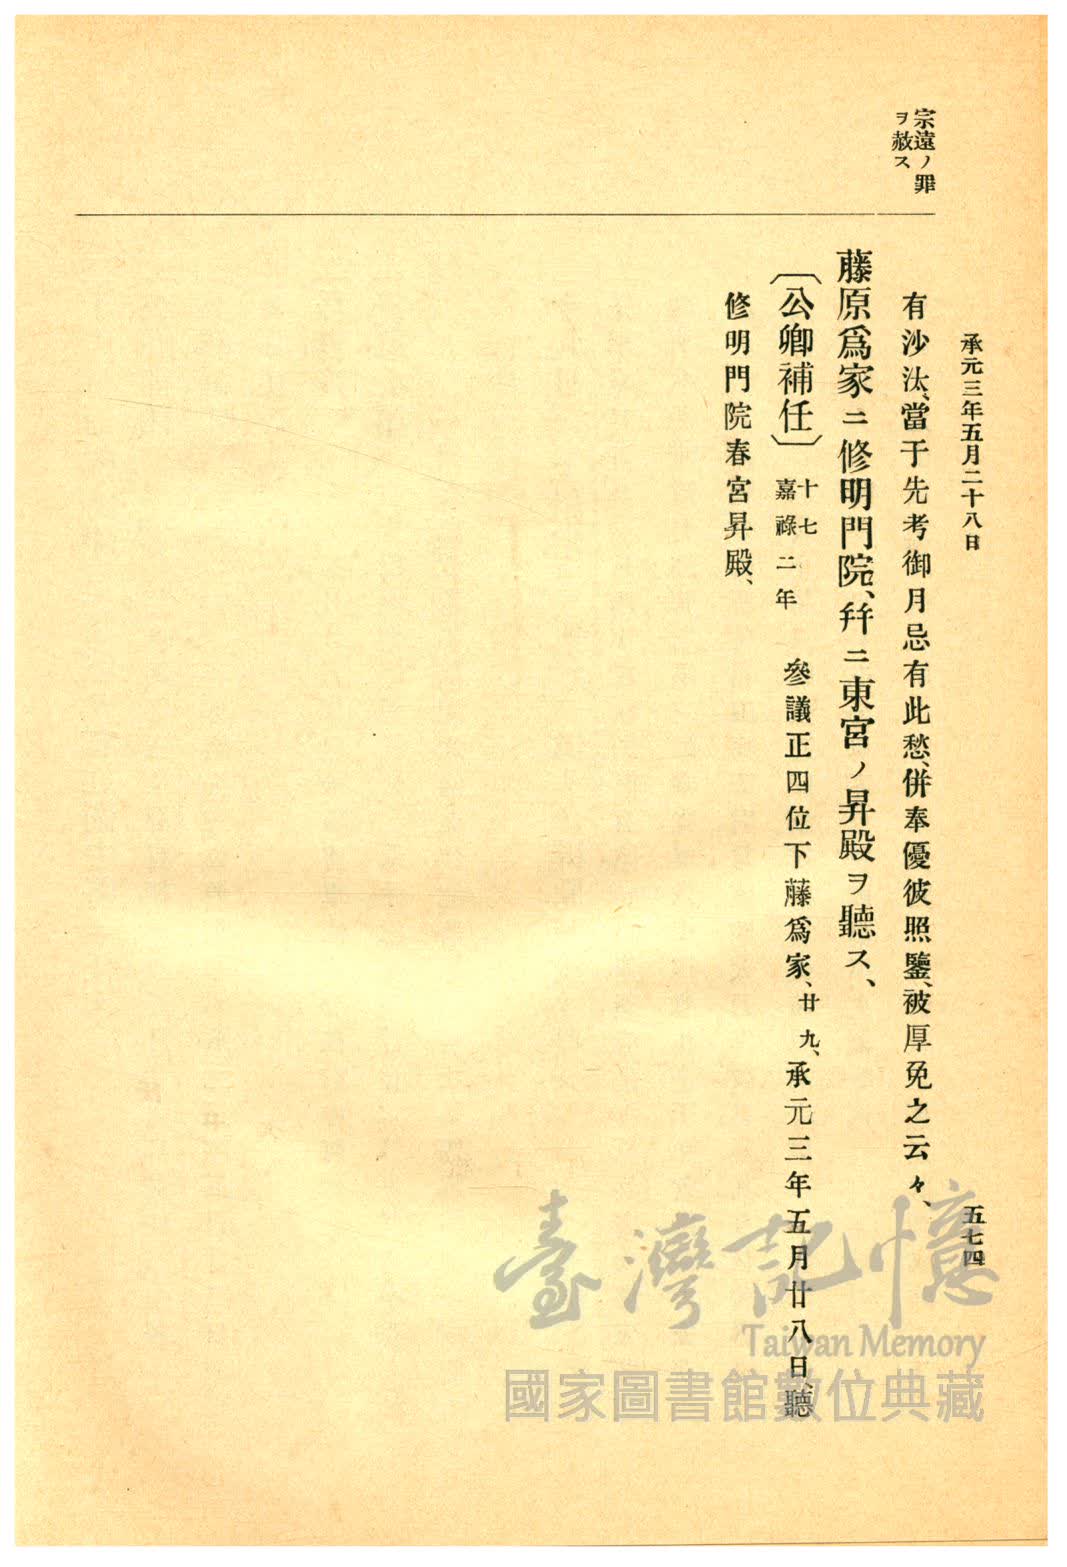 承元三年五月二十八日
五七四
宗遠ノ罪
ヲ赦ス
有沙汰、當于先考御月忌有此愁、併奉優彼照鑒、被厚免之云々、
藤原爲家ニ修明門院、幷ニ東宮ノ昇殿ヲ聽ス、
〔公卿補任〕十七嘉祿二年 參議正四位下藤爲家、廿九、承元三年五月廿八日、聽
修明門院春宮昇殿、
臺灣記憶
Taiwan Memory
國家圖書館數位典藏